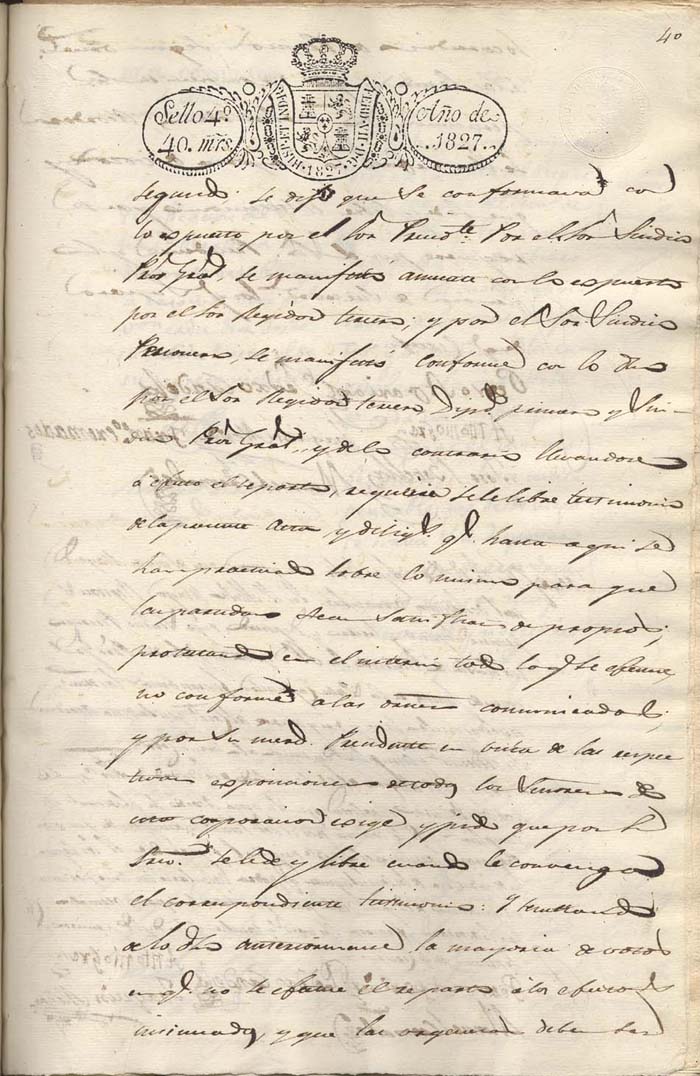 40
Sello 4º
40. mrs
HISP. ET IND. R.
FERD. VII. D. G.
1827
Año de
1827.
segundo se dijo que se conformava con
lo espuesto por el Sor. Presidte. Por el Sor. Sindico
Pror. Gral. se manifestó anuente con lo espuesto
por el Sor Regidor tercero; y por el Sor. Sindico
Personero se manifestó conforme con lo dho
por el Sor Regidor tercero Dipdo. primero y Sin-
Pror. Gral., y de lo contrario llevandose
a efecto el reparto, requiere se le libre testimonio
de la presente Acta, y dilig.s q.e hasta aqui se
han practicado sobre lo mismo para que
las partidas sean de propios;
protestando en el interin todo lo q.e se efectue
no conforme a las ordenes comunicadas;
y por su merd. Presidente en vista de las respec-
tivas exposiciones de todos los Señores de
corporacion exige y pide que por el
Srio. se le dé y libre cuando le convenga
el correspondiente testimonio: Y resultando
de lo dho anteriormente la mayoria de votos
en q.e no se efectue el reparto a los efectos
insinuados, y que las deben ser